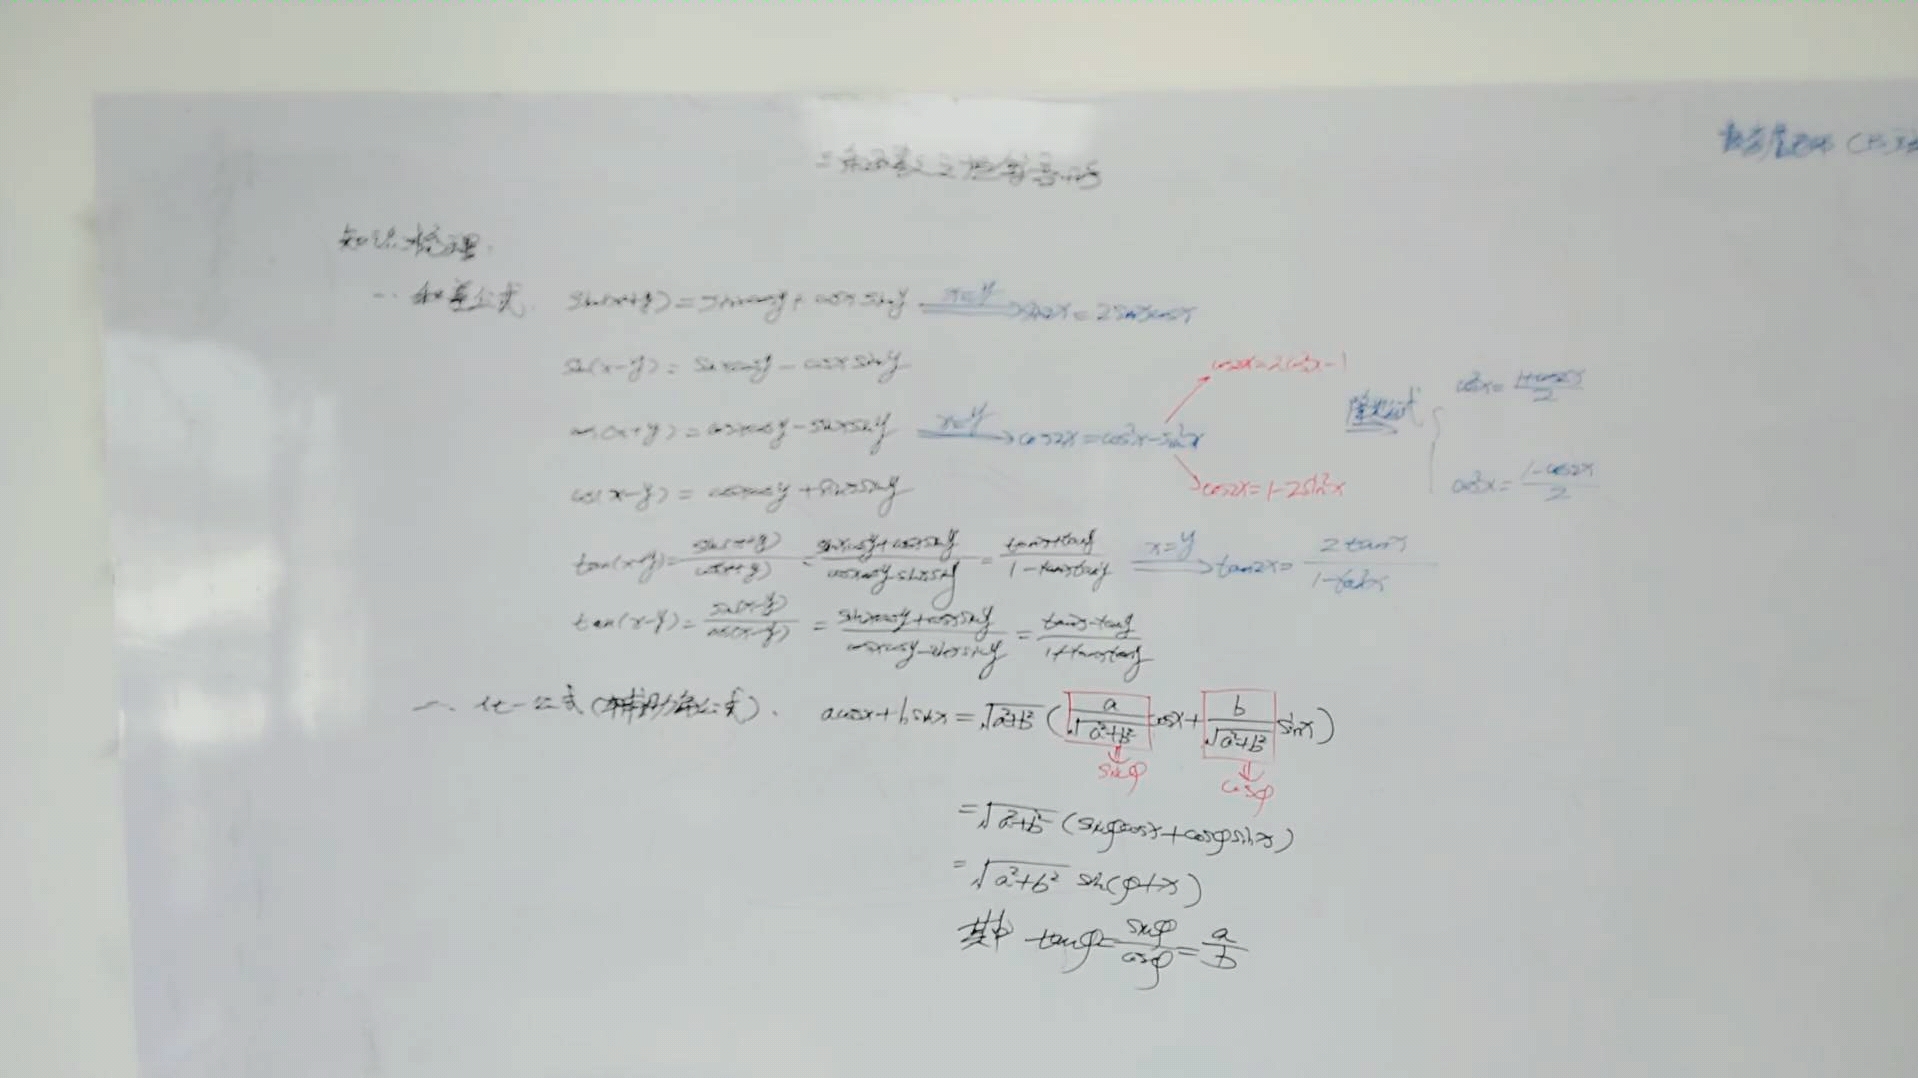 三角函数之恒等变形
知识梳理.
一. 和差公式. sin(x+y)=sinxcosy+cosxsiny x=y ⟹ sin2x=2sinxcosx
sin(x-y)=sinxcosy-cosxsiny
cos2x=2cos²x-1
cos²x=\frac{1+cos2x}{2}
cos(x+y)=cosxcosy-sinxsiny x=y ⟹ cos2x=cos²x-sin²x
cos(x-y)=cosxcosy+sinxsiny
cos2x=1-2sin²x
cos²x=\frac{1-cos2x}{2}
tan(x+y)=\frac{sin(x+y)}{cos(x+y)}=\frac{sinxcosy+cosxsiny}{cosxcosy-sinxsiny}=\frac{tanx+tany}{1-tanxtany} x=y ⟹ tan2x=\frac{2tanx}{1-tan²x}
tan(x-y)=\frac{sin(x-y)}{cos(x-y)}=\frac{sinxcosy+cosxsiny}{cosxcosy-sinxsiny}=\frac{tanx-tany}{1+tanxtany}
化一公式 acosx+bsinx=\sqrt{a²+b²}(\frac{a}{\sqrt{a²+b²}}cosx+\frac{b}{\sqrt{a²+b²}}sinx)
⇓ sinφ ⇓ cosφ
=\sqrt{a²+b²}(sinφcosx+cosφsinx)
=\sqrt{a²+b²} sin(φ+x)
其中 tanφ=\frac{sinφ}{cosφ}=\frac{a}{b}